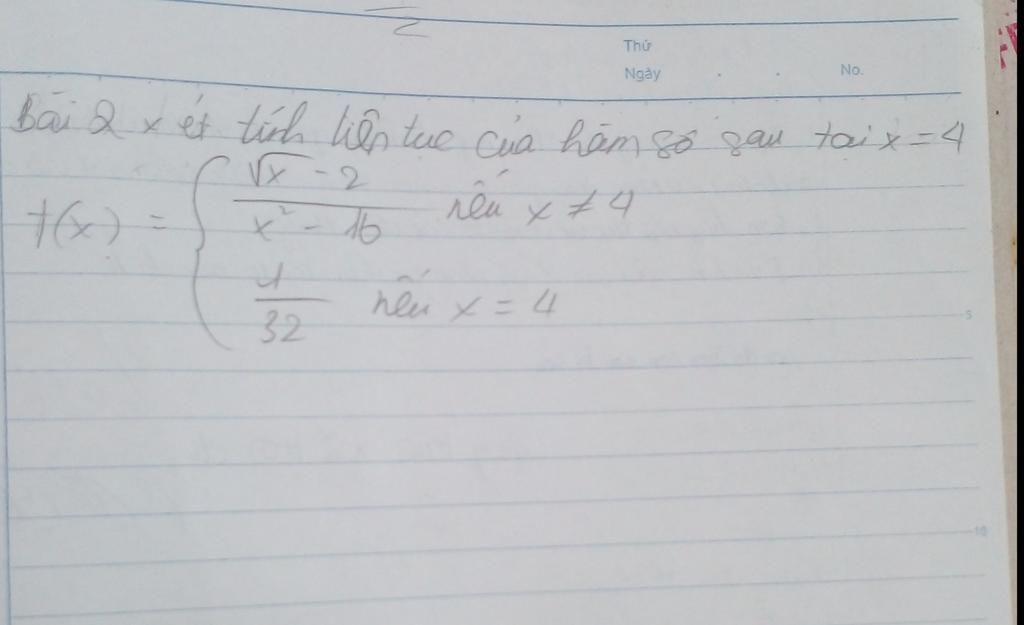 Thứ
Ngày . . No.
Bài 2 xét tính liên tục của hàm số sau tại x = 4
f(x) = { (√x - 2)/(x² - 16) nếu x ≠ 4
1/32 nếu x = 4
5
10